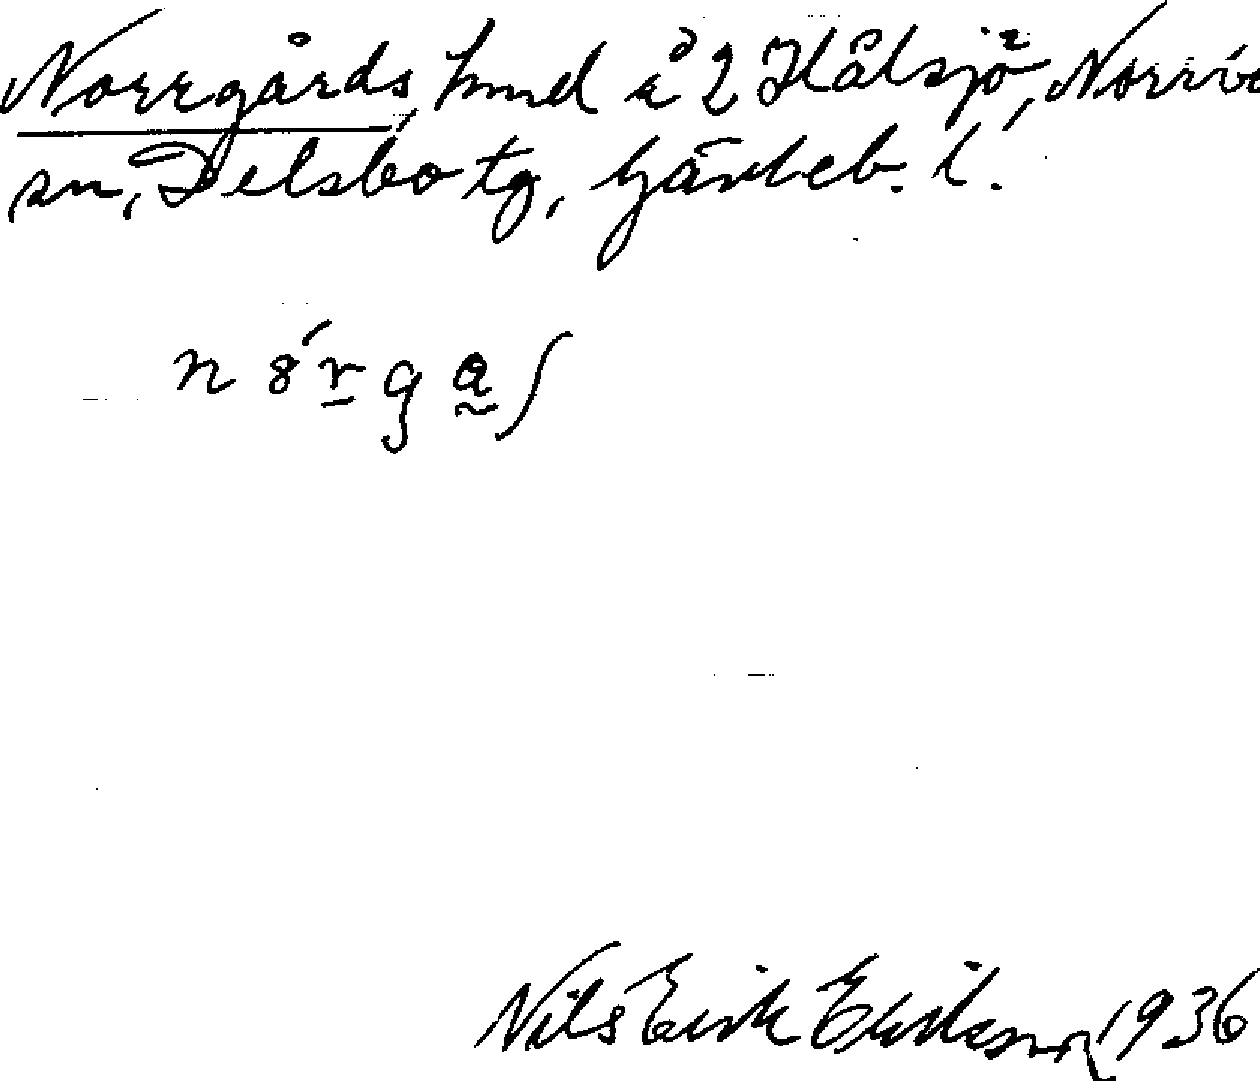 Norrgårds, hmd å 2 Hålsjö, Norrbo
sn, Delsbo tg, Gävleb. l.
Nils Erik Eriksson, 1936